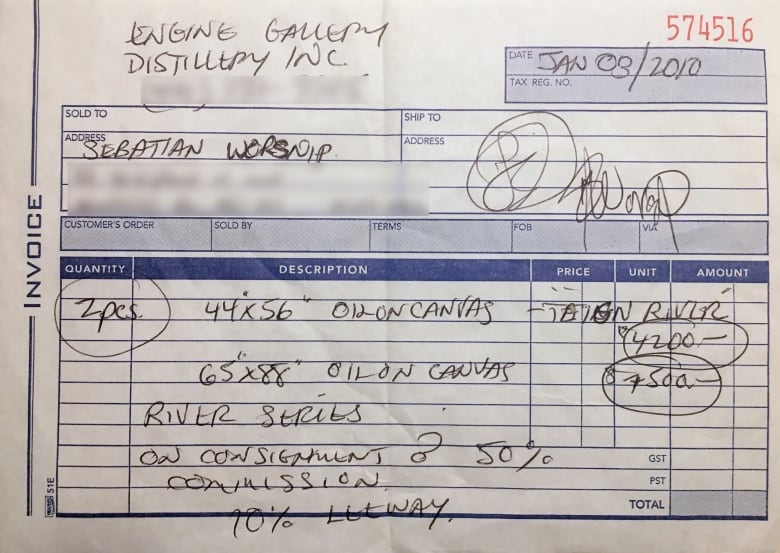 ENGINE GALLERY
DISTILLERY INC.
574516
DATE JAN 03/2010
TAX REG. NO.
SOLD TO
SHIP TO
ADDRESS SEBATIAN WORSNIP
ADDRESS
CUSTOMER'S ORDER SOLD BY TERMS FOB VIA
INVOICE
QUANTITY DESCRIPTION PRICE UNIT AMOUNT
2pcs. 44"X56" OIL ON CANVAS - RIVER
4200.—
65"X88" OIL ON CANVAS $7500.—
RIVER SERIES
ON CONSIGNMENT @ 50% GST
COMMISSION. PST
10% LEEWAY. TOTAL
51E